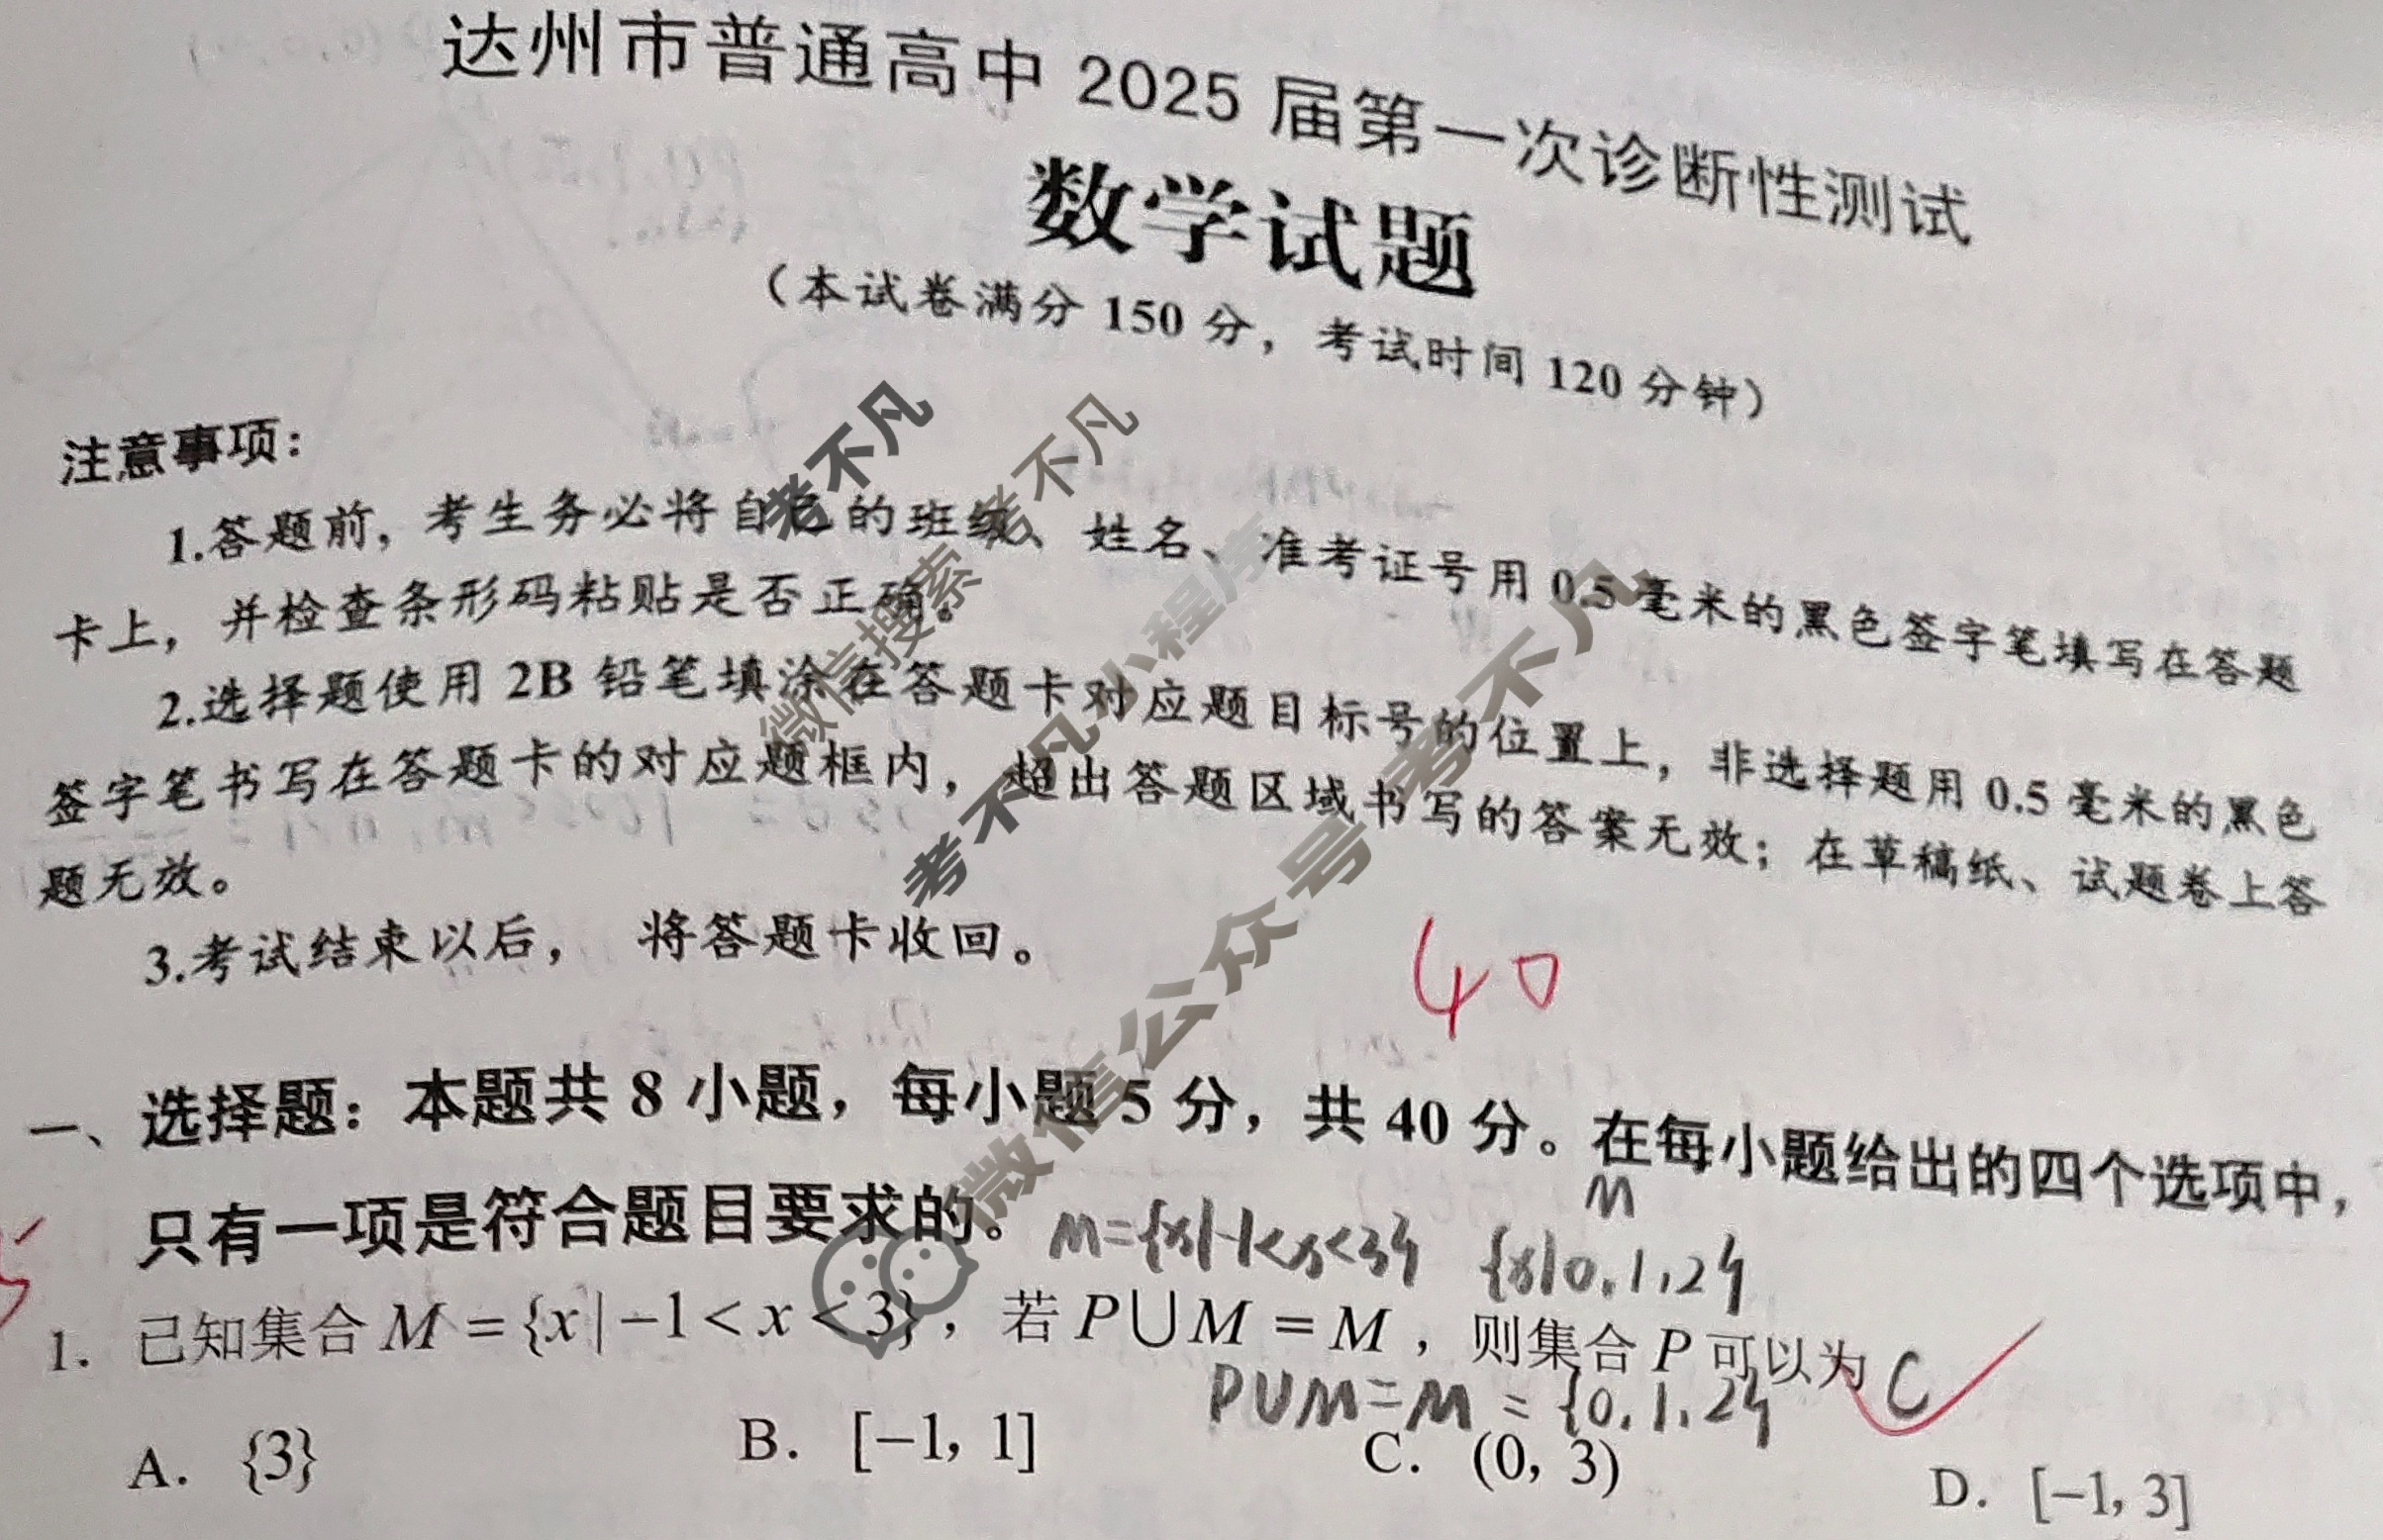 达州市普通高中 2025 届第一次诊断性测试
数学试题
（本试卷满分 150 分，考试时间 120 分钟）
注意事项：
1.答题前，考生务必将自己的班级、姓名、准考证号用 0.5 毫米的黑色签字笔填写在答题
卡上，并检查条形码粘贴是否正确。
2.选择题使用 2B 铅笔填涂在答题卡对应题目标号的位置上，非选择题用 0.5 毫米的黑色
签字笔书写在答题卡的对应题框内，超出答题区域书写的答案无效；在草稿纸、试题卷上答
题无效。
3.考试结束以后， 将答题卡收回。
考不凡
微信搜索 考不凡
考不凡小程序
微信公众号 考不凡
40
一、选择题：本题共 8 小题，每小题 5 分，共 40 分。在每小题给出的四个选项中，
只有一项是符合题目要求的。
M={x|-1<x<3} {x|0,1,2}
M
1. 已知集合 M = {x | −1 < x < 3}，若 P∪M = M，则集合 P 可以为 C
P∪M=M = {0,1,2}
A. {3} B. [−1, 1] C. (0, 3) D. [−1, 3]